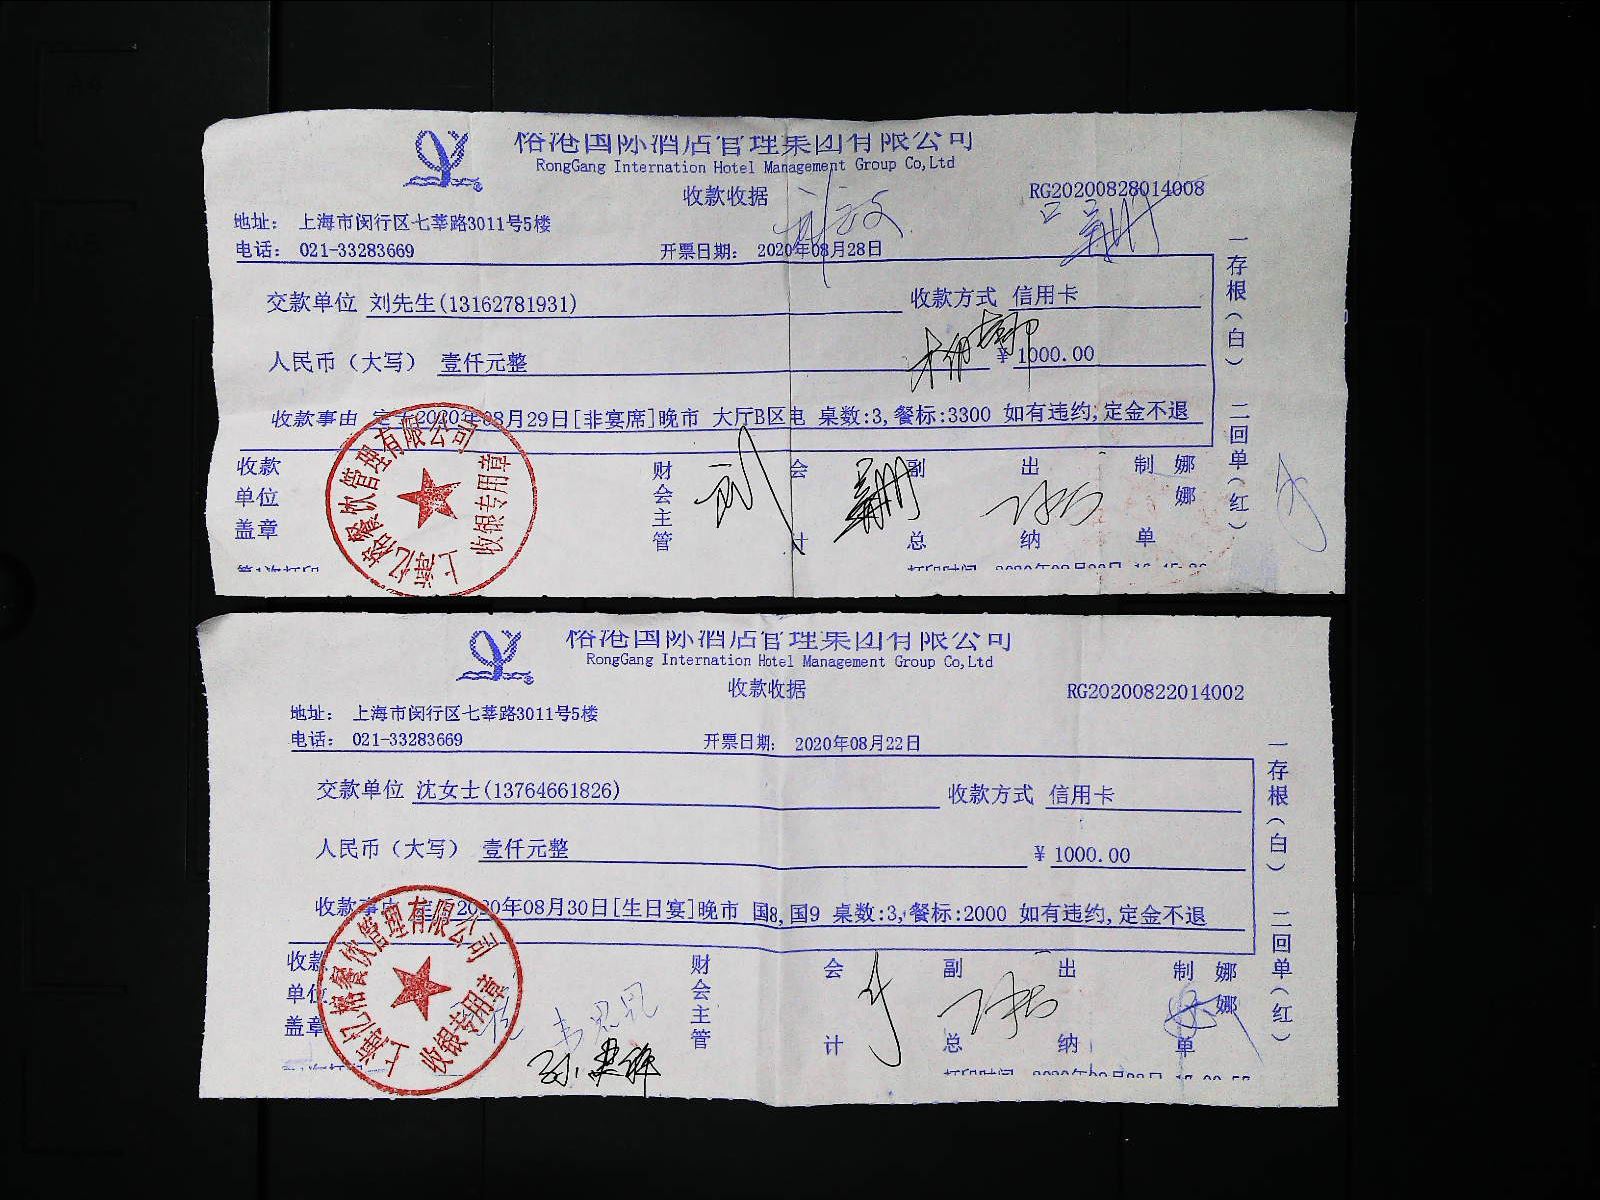 裕港国际酒店管理集团有限公司
RongGang Internation Hotel Management Group Co,Ltd
收款收据
RG20200828014008
地址： 上海市闵行区七莘路3011号5楼
电话： 021-33283669
开票日期： 2020年08月28日
交款单位 刘先生(13162781931)
收款方式 信用卡
人民币（大写） 壹仟元整
¥ 1000.00
收款事由 2020年08月29日[非宴席]晚市 大厅B区电 桌数:3,餐标:3300 如有违约,定金不退
收款单位盖章
财会主管
会计
副总
出纳
制单
娜娜
一存根（白）
二回单（红）
上海亿裕餐饮管理有限公司
收银专用章
第1次打印
打印时间
裕港国际酒店管理集团有限公司
RongGang Internation Hotel Management Group Co,Ltd
收款收据
RG20200822014002
地址： 上海市闵行区七莘路3011号5楼
电话： 021-33283669
开票日期： 2020年08月22日
交款单位 沈女士(13764661826)
收款方式 信用卡
人民币（大写） 壹仟元整
¥ 1000.00
收款事由 2020年08月30日[生日宴]晚市 国8,国9 桌数:3,餐标:2000 如有违约,定金不退
收款单位盖章
财会主管
会计
副总
出纳
制单
娜娜
一存根（白）
二回单（红）
上海亿裕餐饮管理有限公司
收银专用章
打印时间